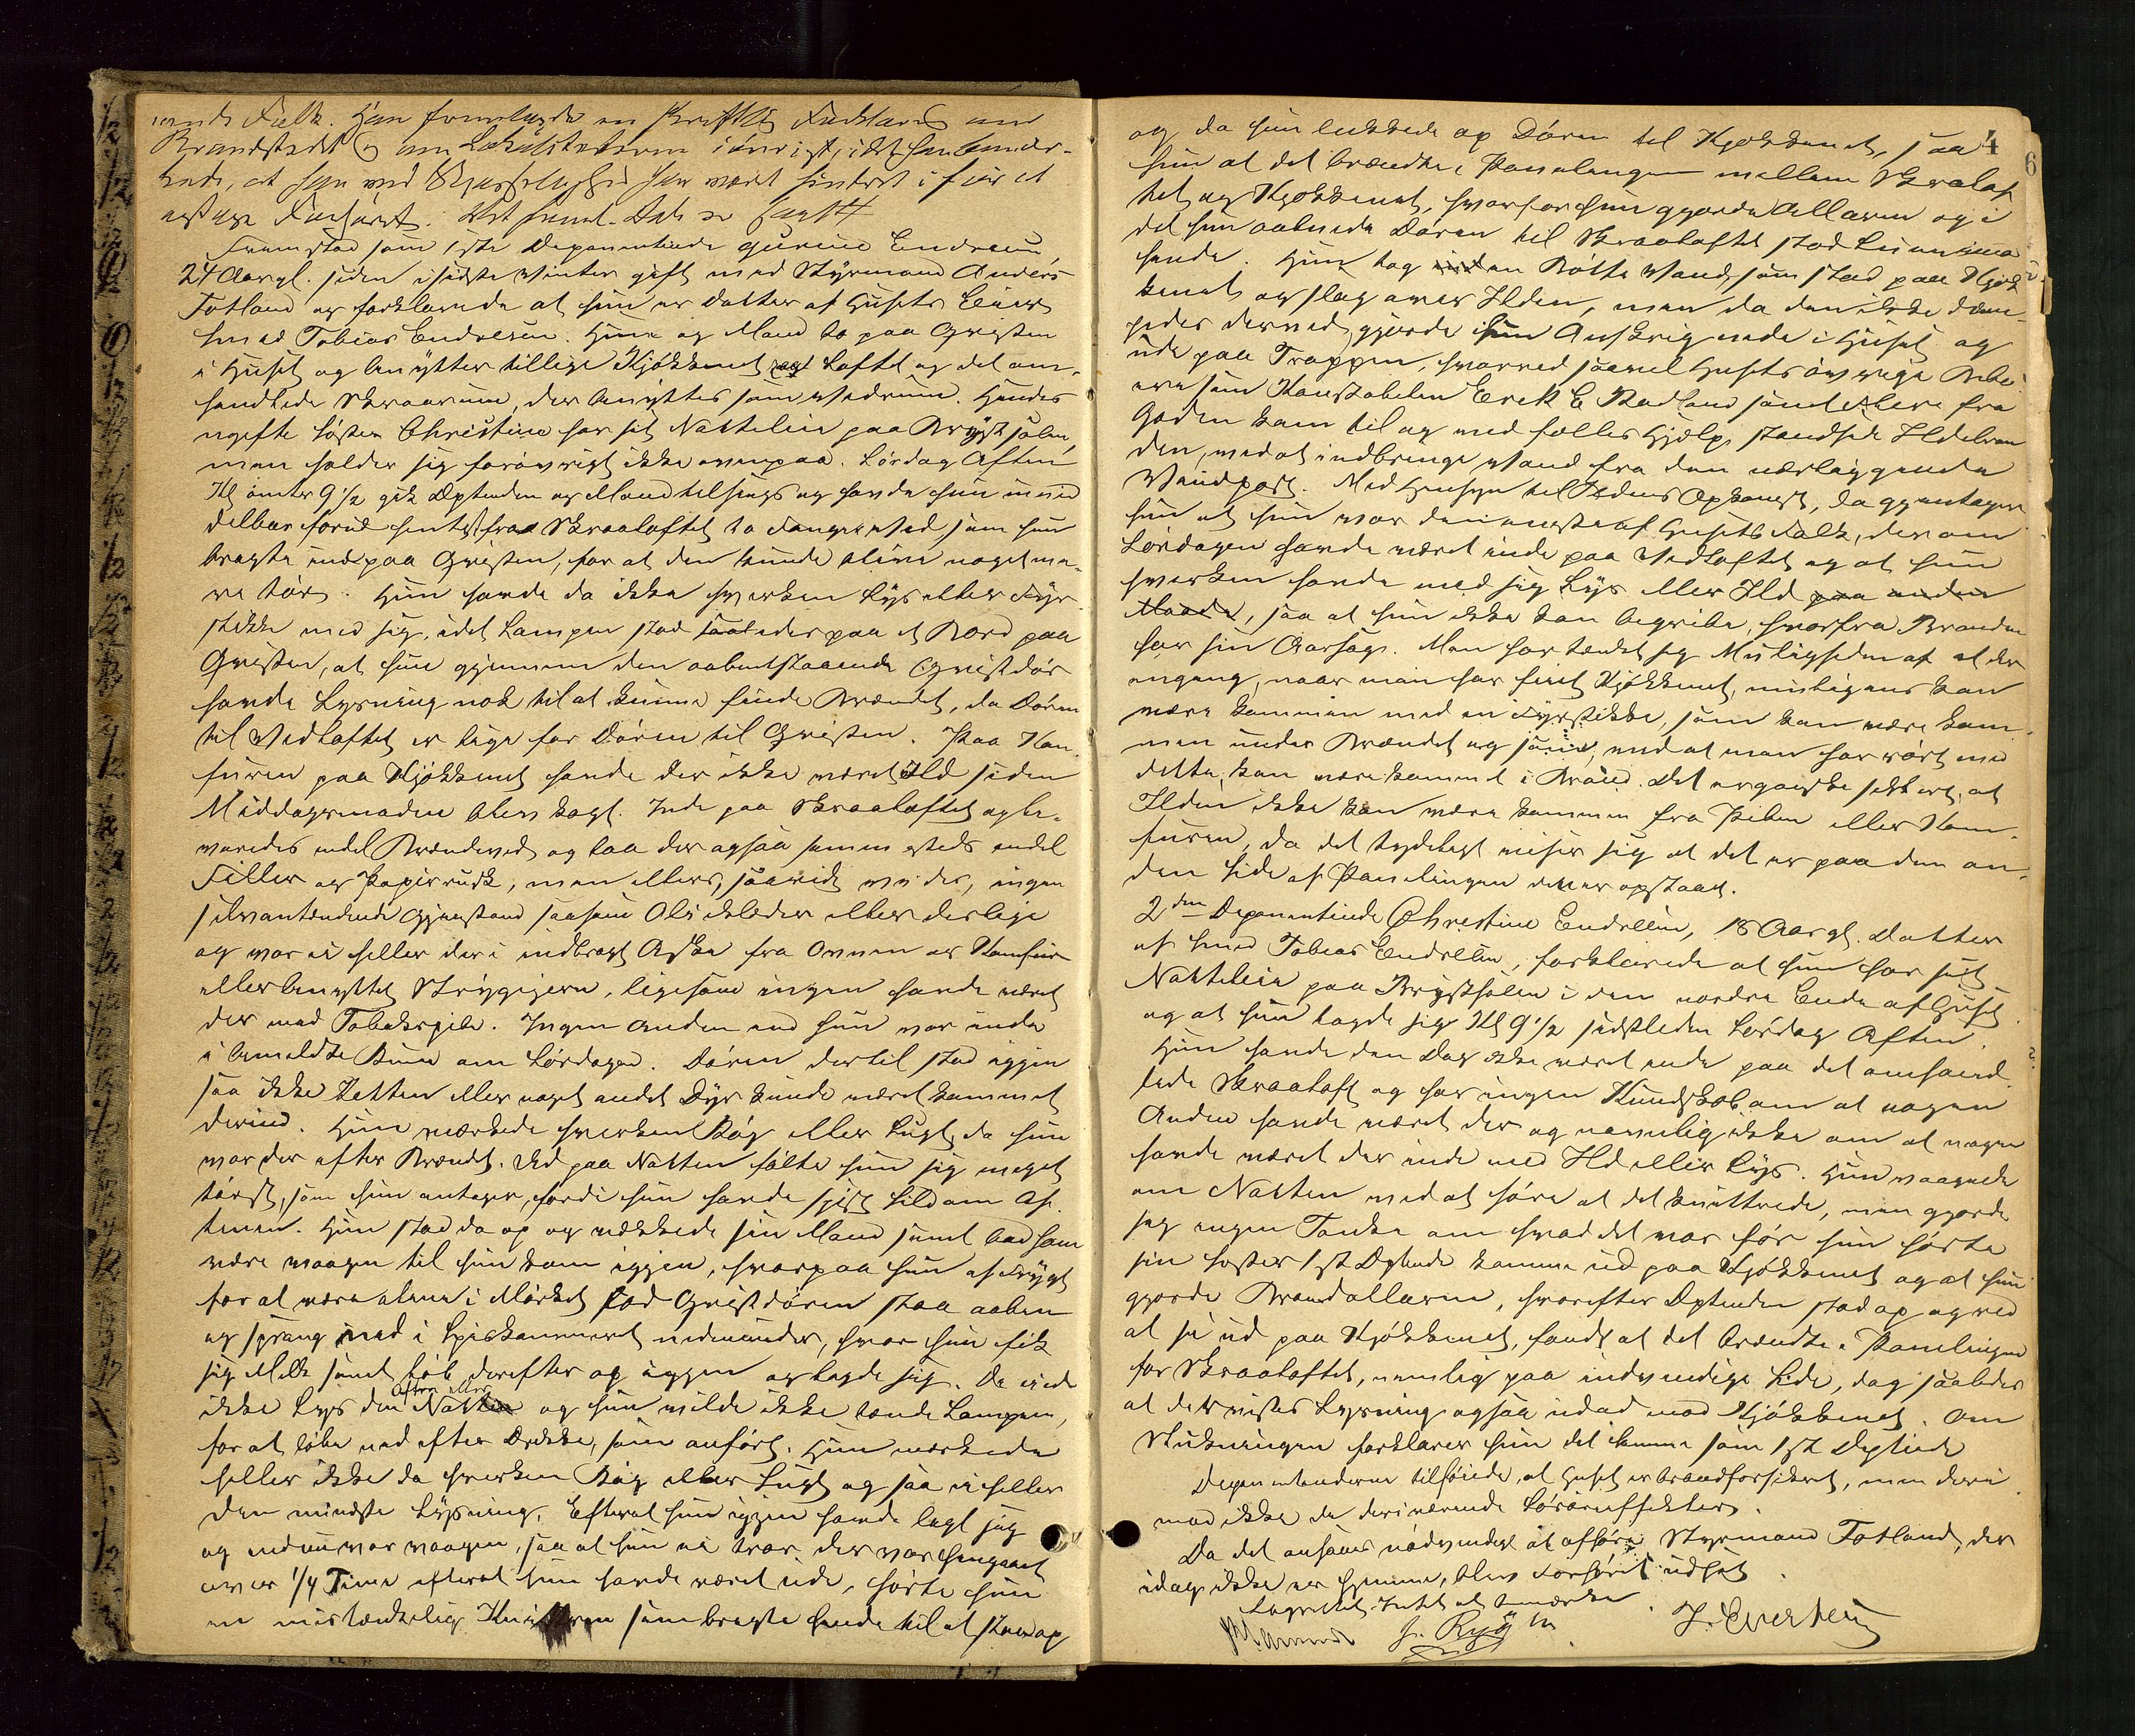 vends Folk. Han fremlagde en skriftlig Forklaring om
Brandstedet og om Lokaliteterne iøvrigt, idet han bemær-
kede, at han ved Skjøsselighed har været hindret i før at
optage Forhøret. Det freml. Dok. er saal. #
Fremstod som 1ste Deponentinde Gurine Endresen,
24 Aar gl. siden i sidste Vinter gift med Styrmand Anders
Totland og forklarede at hun er Datter af Husets Eier
Smed Tobias Endresen. Hun og Mand bo paa Qvisten
i Huset og benytter tillige Kjøkkenet og Loftet og det om-
handlede Skraarum, der benyttes som Vedrum. Hendes
ugifte Søster Christine har sit Natteleie paa Brystsalen,
men holder sig forøvrigt ikke ovenpaa. Lørdag Aften
Kl omtr 9 1/2 gik Dptinden og Mand tilsengs og havde hun umid-
delbar forud hentet fra Skraaloftet to Fange Ved, som hun
bragte ind paa Qvisten, for at den kunde blive noget me-
re tør. Hun havde da ikke hverken Lys eller Fyr-
stikke med sig, idet Lampen stod saaledes paa et Bord paa
Qvisten, at hun gjennem den aabentstaaende Qvistdør
havde Lysning nok til at kunne finde Brændet, da Døren
til Vedloftet er lige for Døren til Qvisten. Paa Kom-
furen paa Kjøkkenet havde der ikke været Ild siden
Middagsmaden blev kogt. Inde paa Skraaloftet opbe-
varedes endel Brændeved og laa der ogsaa sammesteds endel
Filler og Papirrusk, men ellers, saavidt vides, ingen
selvantændende Gjenstand saasom Olieklæder eller deslige
og var ei heller der i indbragt Aske fra Ovnen og Komfur
eller benyttet Strygejern, ligesom ingen havde været
der med Tobakspibe. Ingen Anden end hun var inde
i bemeldte Rum om Lørdagen. Døren dertil stod igjen
saa ikke Katten eller noget andet Dyr kunde været kommet
derind. Hun mærkede hverken Røg eller Lugt, da hun
var der efter Brændet. Ud paa Natten følte hun sig meget
tørst, som hun antager, fordi hun havde spist Sild om Af-
tenen. Hun stod da op og vækkede sin Mand samt bad ham
være vaagen til hun kom igjen, hvorpaa hun af Frygt
for at være alene i Mørket lod Qvistdøren staa aaben
og sprang ned i Spiskammeret nedenunder, hvor hun fik
sig Melk samt løb derefter op igjen og lagde sig. De havde
ikke Lys den Aften eller Natten og hun vilde ikke tænde Lampen,
for at løbe ned efter Drikke, som anført. Hun mærkede
heller ikke da hverken Røg eller Lugt og saa ei heller
den mindste Lysning. Efterat hun igjen havde lagt sig
og endnu var vaagen, saa at hun ei tror der var hengaaet
over 1/4 Time efterat hun havde været ude, hørte hun
en mistænkelig Knittren som bragte hende til at staa op
4
6
og da hun lukkede op Døren til Kjøkkenet, saa
hun at det brændte i Panelingen mellem Skraalof-
tet og Kjøkkenet, hvorfor hun gjorde Allarm og i
det hun aabnede Døren til Skraaloftet stod Luen imod
hende. Hun tog en Bøtte Vand, som stod paa Kjøk-
kenet og slog over Ilden, men da den ikke dæm-
pedes derved, gjorde hun Anskrig nede i Huset og
ude paa Trappen, hvorved saavel Husets øvrige Bebo-
ere som Konstabelen Erik E Stadland samt Flere fra
Gaden kom til og med fælles Hjælp standsede Ildebran-
den, ved at indbringe Vand fra den nærliggende
Vandpost. Med Hensyn til Ildens Opkomst, da gjentager
hun at hun var den eneste af Husets Folk, der om
Lørdagen havde været inde paa Vedloftet og at hun
hverken havde med sig Lys eller Ild paa anden
Maade, saa at hun ikke kan begribe, hvorfra Branden
har sin Aarsag. Man har tænkt sig Muligheden af at der
engang, naar man har feiet Kjøkkenet, muligens kan
være kommen med en Fyrstikke, som kan være kom-
men under Brændet og saa, ved at man har rørt ved
dette, kan være kommet i Brand. Det er ganske sikkert, at
Ilden ikke kan være kommen fra Piben eller Kom-
furen, da det tydeligt viser sig at det er paa den an-
den Side af Panelingen den er opstaaet.
2den Deponentinde Christine Endresen, 18 Aar gl. Datter
af Smed Tobias Endresen, forklarede at hun har sit
Natteleie paa Brystsalen i den nordre Ende af Huset
og at hun lagde sig Kl 9 1/2 sidstleden Lørdag Aften.
Hun havde den Dag ikke været inde paa det omhand-
lede Skraaloft og har ingen Kundskab om at nogen
Anden havde været der og navnlig ikke om at nogen
havde været der inde med Ild eller Lys. Hun vaagnede
om Natten ved at høre at det knittrede, men gjorde
sig ingen Tanke om hvad det var før hun hørte
sin Søster 1ste Dptinde komme ud paa Kjøkkenet og at hun
gjorde Brandallarm, hvorefter Dptinden stod op og ved
at se ud paa Kjøkkenet, fandt at det brændte i Panelingen
for Skraaloftet, nemlig paa indvendige Side, dog saaledes
at der vistes Lysning ogsaa udad mod Kjøkkenet. Om
Slukningen forklarer hun det samme som 1ste Dptinde
Deponentinderne tilføiede, at Huset er brandforsikret, men deri-
mod ikke de deriværende Løsøreeffekter.
Da det ansaaes nødvendigt at afhøre Styrmand Totland, der
idag ikke er hjemme, blev Forhøret udsat.
Lagrettet Intet at bemærke.
J. Ryg
J. Evertsen